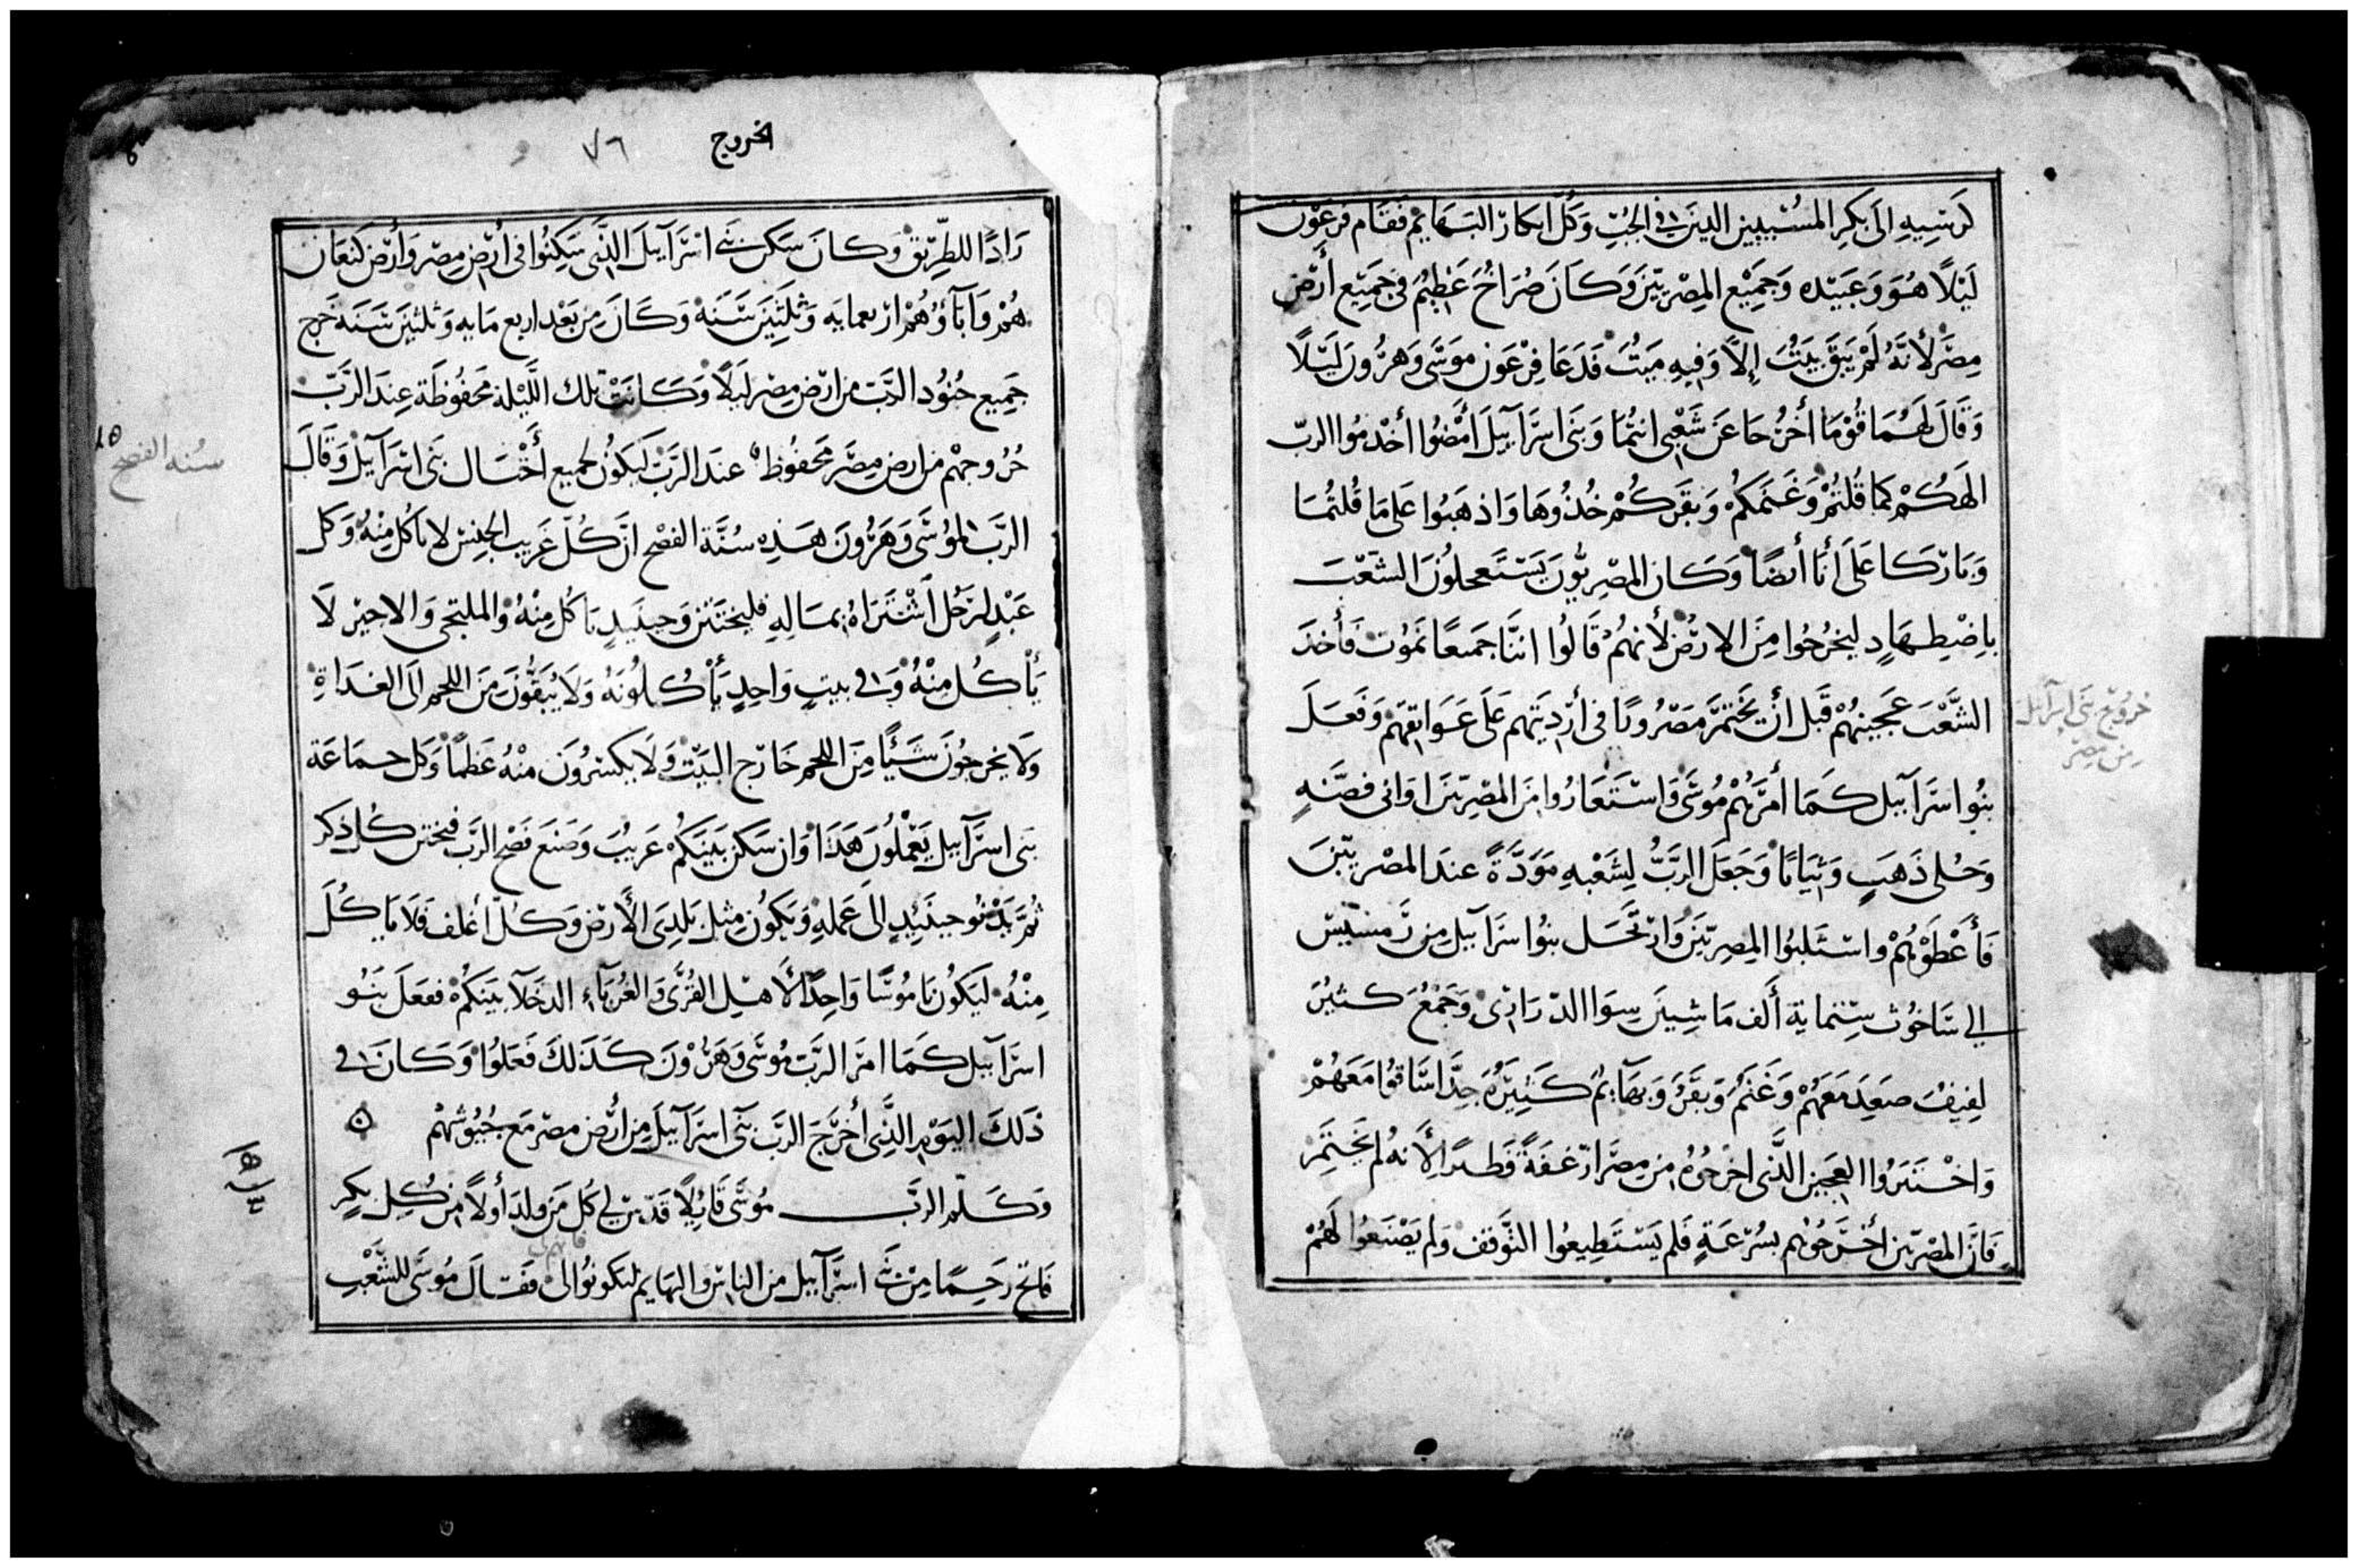 كرسيه الى بكر المسبيين الدين في الجب وكل ابكار البهايم فقام فرعون
ليلًا هو وعبيده وجميع المصريين وكان صراخ عظيم في جميع أرض
مصر لأنه لم يبق بيت إلا وفيه ميت فدعا فرعون موسى وهرون ليلًا
وقال لهما قوما أخرجا عن شعبي انتما وبنى اسرآييل أمضوا أخدموا الرب
الهكم كما قلتم وغنمكم وبقركم خذوها واذهبوا على ما قلتما
وباركا على أنا أيضًا وكان المصريون يستعجلون الشعب
باضطهاد ليخرجوا من الارض لأنهم قالوا اننا جميعًا نموت فأخد
الشعب عجينهم قبل أن يختمر مصرورًا في أرديتهم على عواتقهم وفعل
بنوا اسرآييل كما أمرهم موسى واستعاروا من المصريين اوانى فضه
وحلى ذهب وثيابًا وجعل الرب لشعبه مودة عند المصريين
فأعطوهم واستلبوا المصريين وارتحل بنوا اسرآييل من رمسيس
الي ساخوث ستماية ألف ماشيين سوا الدراري وجمع كثير
لفيف صعد معهم وغنم وبقر وبهآيم كثيره جدا ساقوا معهم
واختبروا العجين الذى اخرجوه من مصر ارغفة فطيرًا لأنه لم يختمر
فان المصريين أخرجوهم بسرعة فلم يستطيعوا التوقف ولم يصنعوا لهم
خروج بنى اسرآييل
من مصر
الخروج
٧٦
زادًا للطريق وكان سكن بني اسرآييل الذى سكنوا في أرض مصر وأرض كنعان
هم وآبآؤهم اربعمايه وثلثين سنه وكان من بعد اربع مايه وثلثين سنه خرج
جميع جنود الرب من ارض مصر ليلًا وكانت تلك الليلة محفوظة عند الرب
خروجهم من ارض مصر محفوظه عند الرب ليكون لجميع أختسال بنى اسرآييل وقال
الرب لموسى وهرون هذه سنة الفصح ان كل غريب الجنس لا ياكل منه وكل
عبد لرجل اشتراه بماله فليختتن وحينيد ياكل منه والملتجى والاجير لا
يأكل منه وفي بيت واحد يأكلونه ولا يبقون من اللحم الى الغداة
ولا يخرجون شيًا من اللحم خارج البيت ولا يكسرون منه عظمًا وكل جماعة
بنى اسرآييل يعملون هذا وان سكن بينكم غريب وصنع فصح الرب فيختن كل ذكر
ثم يدنو حينيد الى عمله ويكون مثل بلدى الأرض وكل أغلف فلا ياكل
منه ليكون ناموسًا واحدًا لأهل القرى والغربآء الدخلا بينكم ففعل بنو
اسرآييل كما امر الرب موسى وهرون كذلك فعلوا وكان في
ذلك اليوم الذى أخرج الرب بنى اسرآييل من أرض مصر مع جيوشهم
وكلم الرب موسى قايلًا قدس لي كل من ولد أولًا من كل بكر
فاتح رحمًا من بني اسرآييل من الناس والبهايم ليكونوا لى فقال موسى للشعب
سنه الفصح